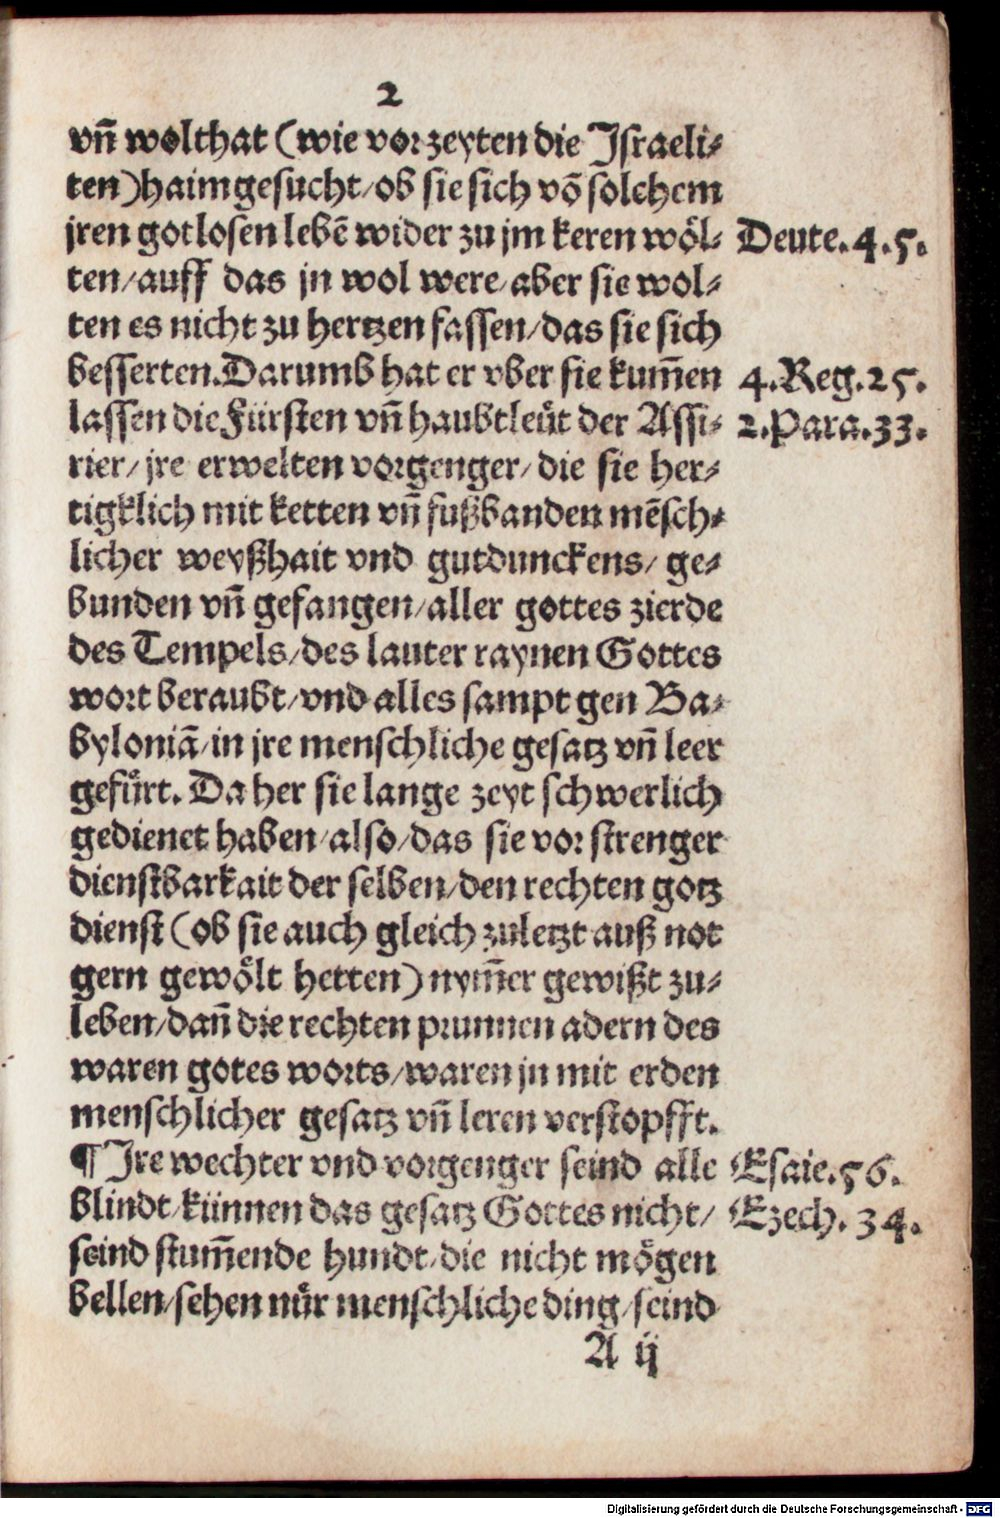 2
vñ wolthat (wie vor zeyten die Israeli-
ten) haimgesucht/ ob sie sich võ solchem
jren gotlosen lebē wider zu jm keren wöl-
Deute.4.5.
ten/ auff das jn wol were/ aber sie wol-
ten es nicht zu hertzen fassen/ das sie sich
besserten. Darumb hat er vber sie kum̄en
4.Reg.25.
lassen die Fürsten vñ haubtleüt der Assi-
2.Para.33.
rier/ jre erwelten vorgenger/ die sie her-
tigklich mit ketten vñ fußbanden mēsch-
licher weyßhait vnd gutdunckens/ ge-
bunden vñ gefangen/ aller gottes zierde
des Tempels/ des lauter raynen Gottes
wort beraubt/ vnd alles sampt gen Ba-
byloniā/ in jre menschliche gesatz vñ leer
gefürt. Da her sie lange zeyt schwerlich
gedienet haben/ also/ das sie vor strenger
dienstbarkait der selben/ den rechten gotz
dienst (ob sie auch gleich zuletzt auß not
gern gewölt hetten) nym̄er gewißt zu-
leben/ dañ die rechten prunnen adern des
waren gotes worts/ waren jn mit erden
menschlicher gesatz vñ leren verstopfft.
¶ Jre wechter vnd vorgenger seind alle
Esaie.56.
blindt/ künnen das gesatz Gottes nicht/
Ezech.34.
seind stum̄ende hundt/ die nicht mögen
bellen/ sehen nür menschliche ding/ seind
A ij
Digitalisierung gefördert durch die Deutsche Forschungsgemeinschaft - DFG